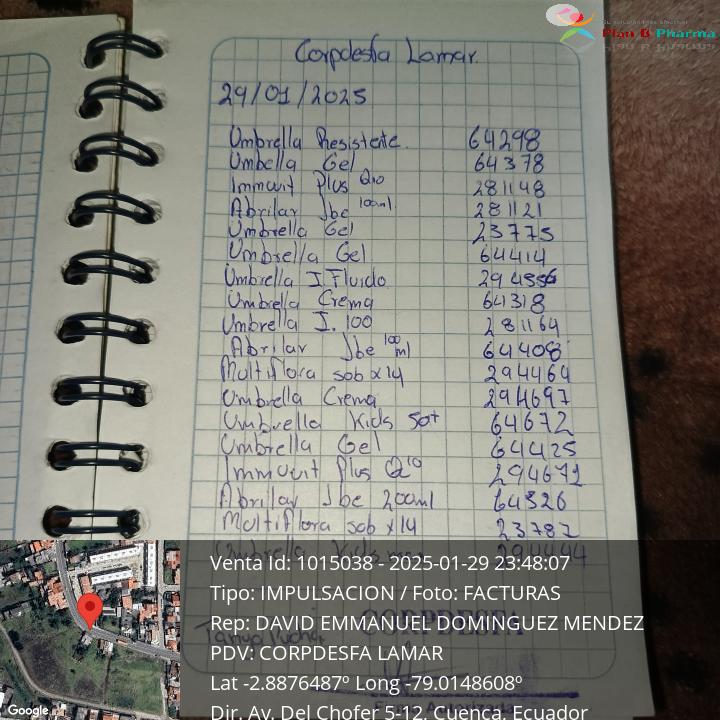 Plan B Pharma
Corpdesfa Lamar.
29/01/2025
Umbrella Resistente. 64298
Umbella Gel 64378
Immuvit Plus Q10 281148
Abrilar Jbe 100ml. 281121
Umbrella Gel 23775
Umbrella Gel 64414
Umbrella I. Fluido 294556
Umbrella Crema 64318
Umbrella I. 100 281164
Abrilar Jbe 100 ml 64408
Multiflora sob x14 294464
Umbrella Crema 294697
Umbrella Kids 50+ 64672
Umbrella Gel 64425
Immuvit Plus Q10 294671
Abrilar Jbe 200ml 64326
Multiflora sob x14 23782
Umbrella Kids 294444
Venta Id: 1015038 - 2025-01-29 23:48:07
Tipo: IMPULSACION / Foto: FACTURAS
CORPDESFA
Rep: DAVID EMMANUEL DOMINGUEZ MENDEZ
PDV: CORPDESFA LAMAR
Lat -2.8876487º Long -79.0148608º
Dir. Av. Del Chofer 5-12, Cuenca, Ecuador
Google